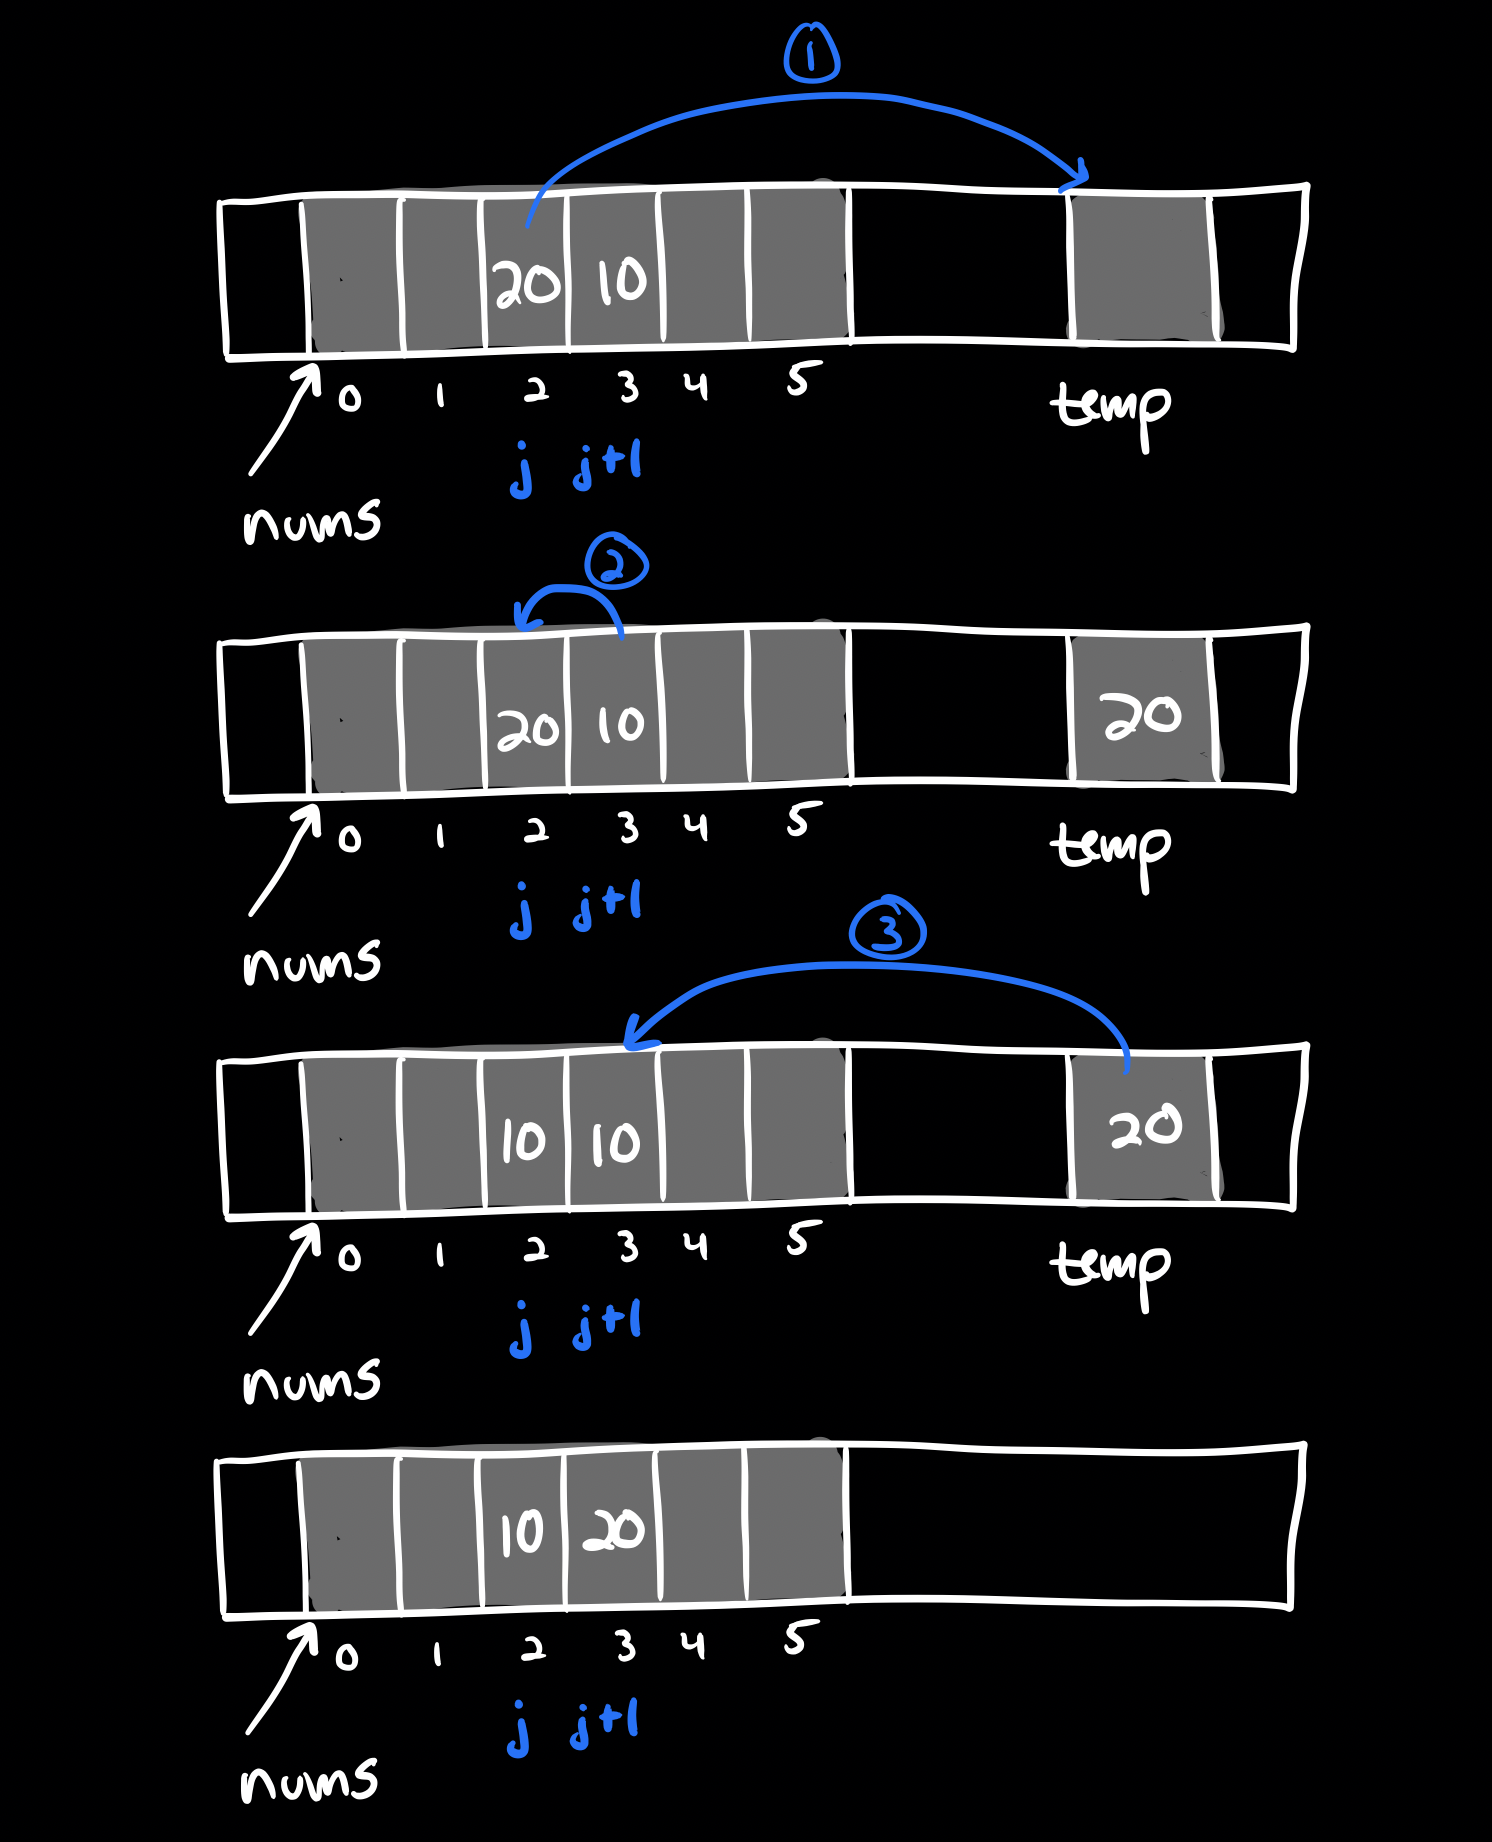 1
20 10
0 1 2 3 4 5 temp
j j+1
nums
2
20 10 20
0 1 2 3 4 5 temp
j j+1
nums
3
10 10 20
0 1 2 3 4 5 temp
j j+1
nums
10 20
0 1 2 3 4 5
j j+1
nums